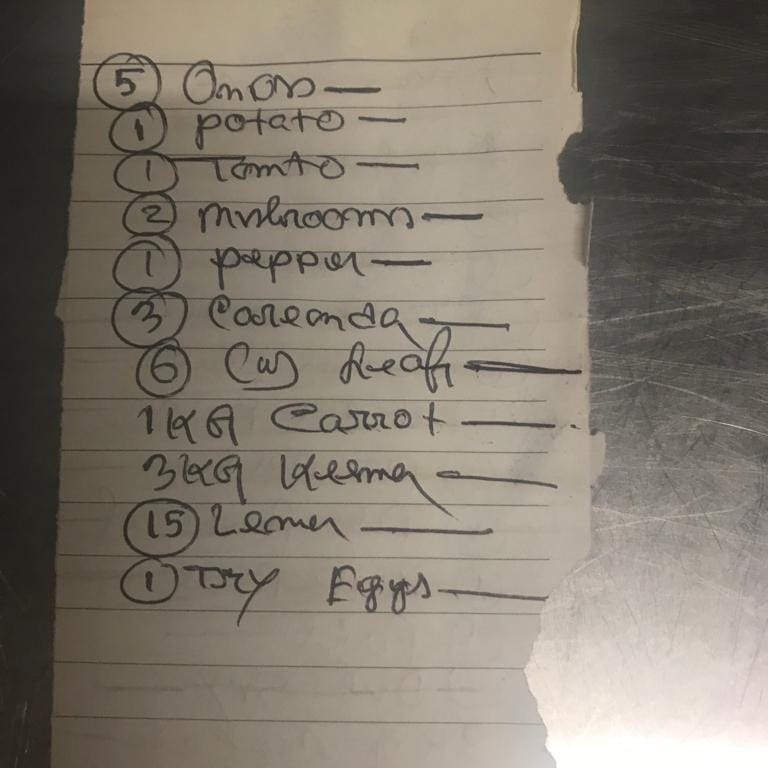 5 Onons —
1 potato —
1 Tomto —
2 mushrooms —
1 pepper —
3 Coreanda —
6 Leafs —
1 KG Carrot —
3 KG Keema —
15 Lemen —
1 Try Eggs —